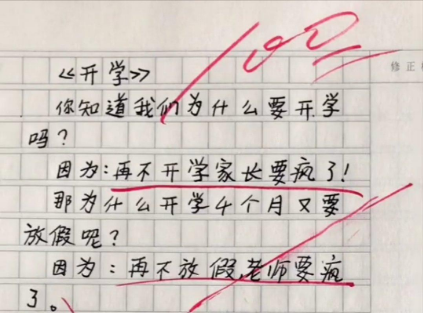 100
修正
《开学》
你知道我们为什么要开学
吗？
因为：再不开学家长要疯了！
那为什么开学4个月又要
放假呢？
因为：再不放假，老师要疯
了。